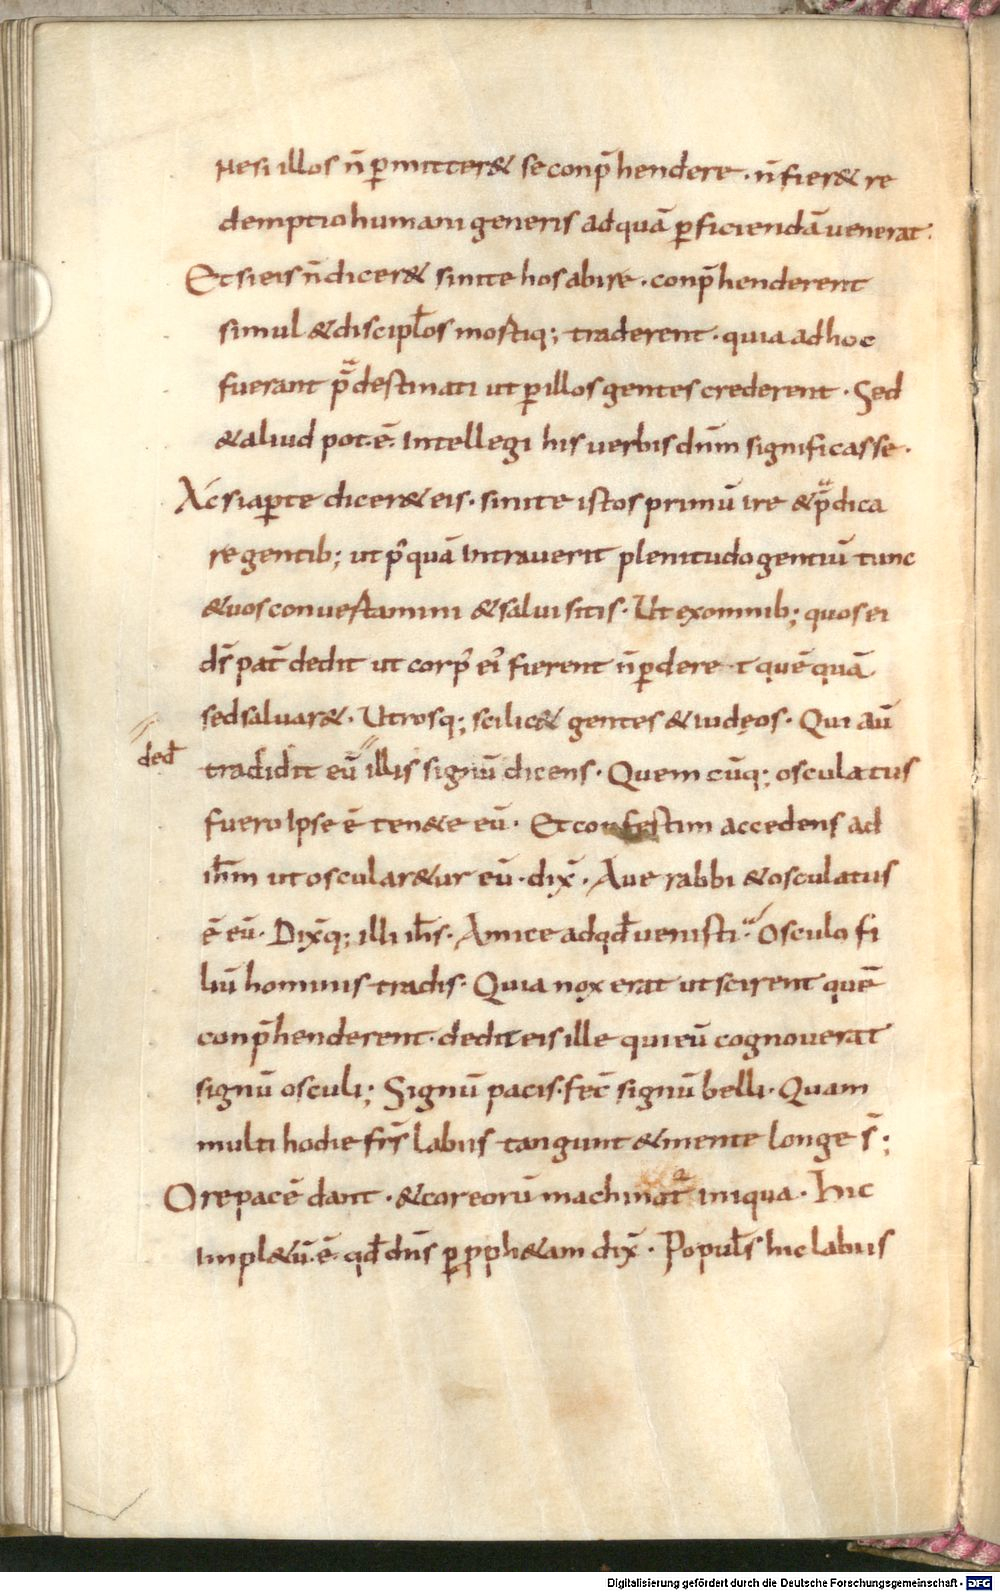 Nesi illos n̄ ꝑmitter& se conp̄hendere · n̄ fier& re
demptio humani generis ad quā ꝑficiendā uenerat.
Et si eis n̄ dicer& sinite hos abire · conp̄henderent
simul & discipl̄os mostiq; traderent · quia ad hoc
fuerant p̄destinati ut ꝑ illos gentes crederent · Sed
& aliud pot·ē· intellegi his uerbis dnm̄ significasse ·
Ac si aꝑte dicer& eis · sinite istos primū ire & p̄dica
re gentib; ut pꝰquā intrauerit plenitudo gentiū tunc
& uos conuertamini & salui sitis · Ut ex omnib; quos ei
ds̄ pat̄ dedit ut corpꝰ eiꝰ fierent n̄ ꝑdere · t quēquā
sed saluar& · Utrosq; scilic& gentes & iudęos · Qui aū
ded̄
tradidit eū illis signū dicens · Quem cūq; osculatus
fuero ipse ē ten&e eū · Et confestim accedens ad
ih̄m ut oscular&ur eū · dix̄ · Aue rabbi & osculatus
ē eū · Dix̄q; illi ih̄s · Amice ad qd̄ uenisti · Osculo fi
liū hominis tradis · Quia nox erat ut scirent quē
conp̄henderent · dedit eis ille qui eū cognouerat
signū osculi; Signū pacis · fec̄ signū belli · Quam
multi hodie frs̄ labiis tangunt & mente longe s̄;
Ore pacē dant · & cor eorū machinat̄ iniqua · Hic
impl&ū·ē· qd̄ dns̄ ꝑ pph&am dix̄ · Populs̄ hic labiis
Digitalisierung gefördert durch die Deutsche Forschungsgemeinschaft - DFG